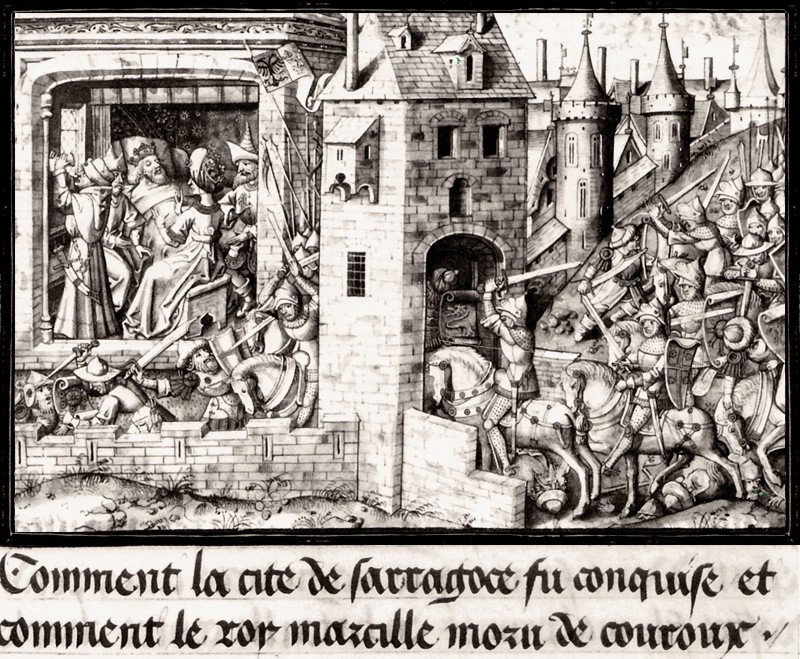 Comment la cite de sarragoce fu conquise et
comment le roy marcille moru de couroux ./